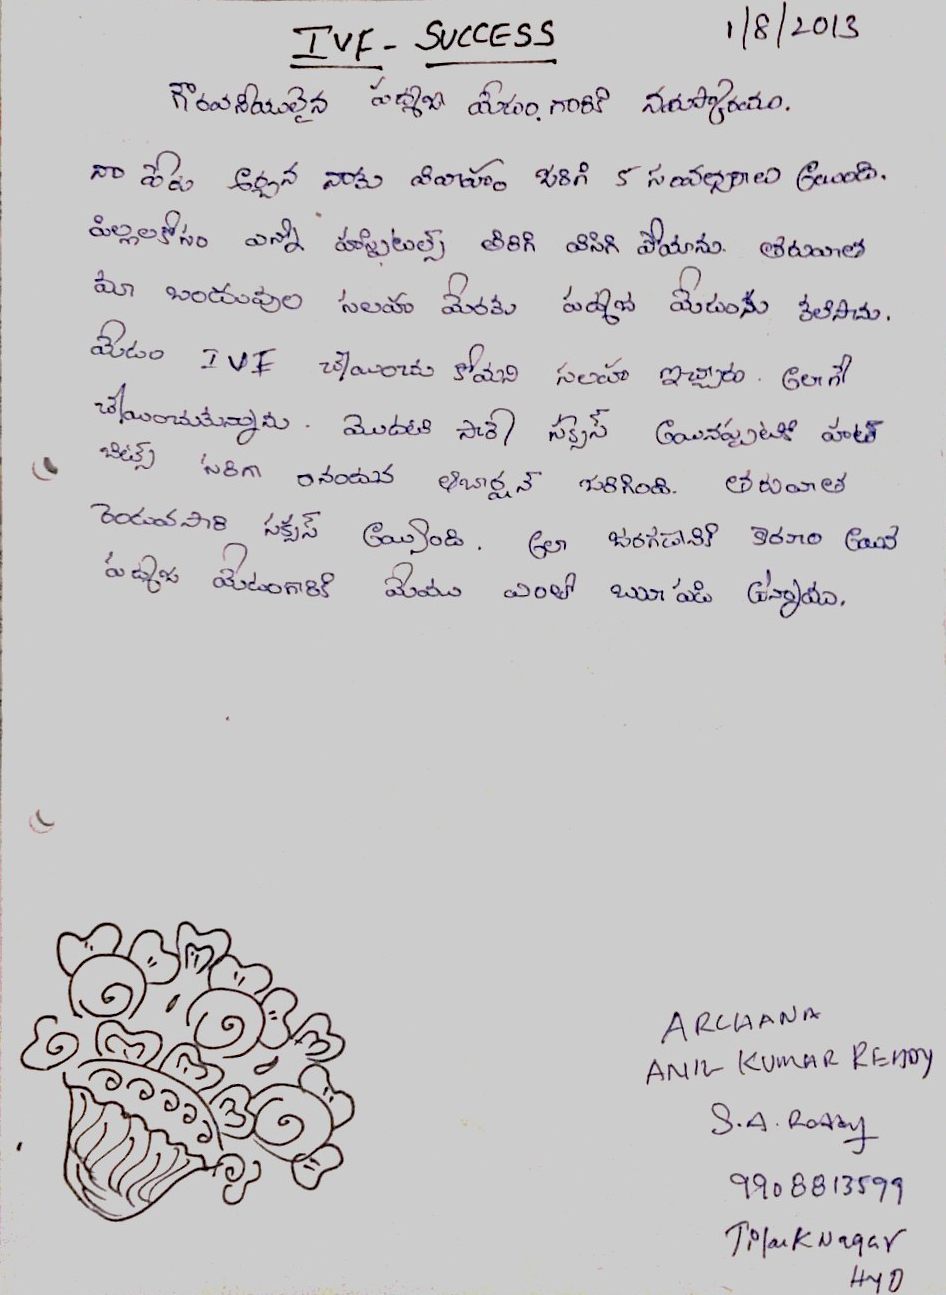 IVF - SUCCESS 1/8/2013
గౌరవనీయులైన పద్మజ మేడం గారికి నమస్కారము.
నా పేరు అర్చన నాకు వివాహం జరిగి 5 సంవత్సరాలు అయింది.
పిల్లలకోసం ఎన్నో హాస్పిటల్స్ తిరిగి విసిగి పోయాను. తరువాత
మా బంధువుల సలహా మేరకు పద్మజ మేడంను కలిసాము.
మేడం IVF చేయించు కోమని సలహా ఇచ్చారు. అలాగే
చేయించుకున్నాను. మొదటి సారి సక్సెస్ అయినప్పటికి హార్ట్
బిట్స్ సరిగా రానందున అబార్షన్ జరిగింది. తరువాత
రెండువసారి సక్సస్ అయ్యింది. అలా జరగడానికి కారణం అయిన
పద్మజ మేడంగారికి మేము ఎంతో ఋణపడి ఉన్నాము.
ARCHANA
ANIL KUMAR REDDY
S.A. Reddy
9908813599
TilakNagar
HYD